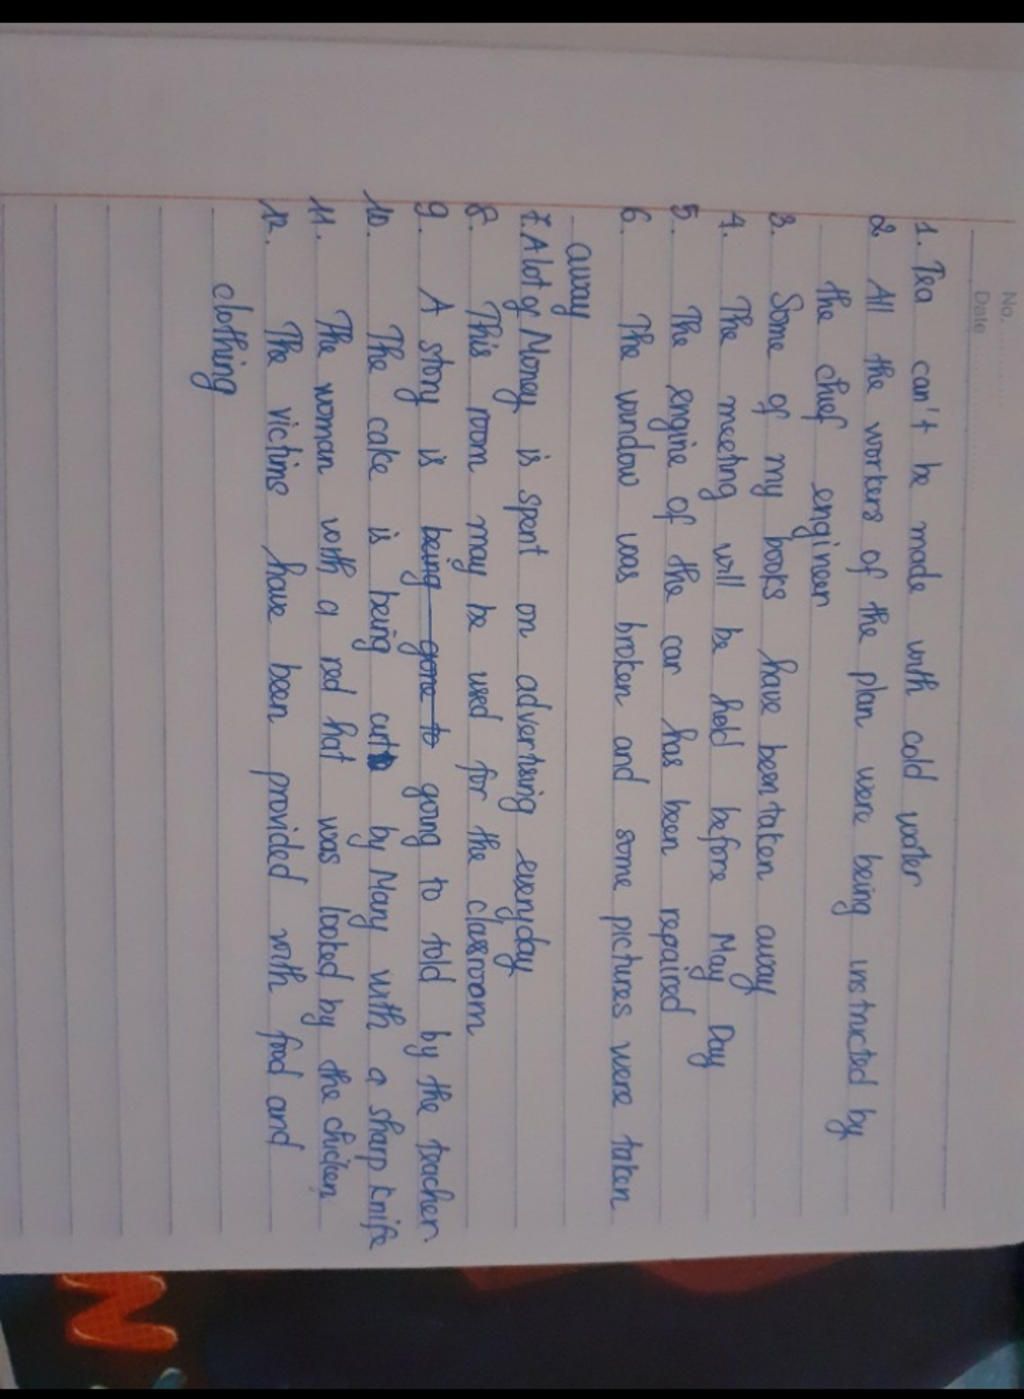 No.
Date
1. Tea can't be made with cold water
2 All the workers of the plan were being instructed by
the chief engineer
3. Some of my books have been taken away
4. The meeting will be held before May Day
5 The engine of the car has been repaired
6. The window was broken and some pictures were taken
away
7. A lot of Money is spent on advertising everyday
8. This room may be used for the classroom
9. A story is being gone to going to told by the teacher
10. The cake is being cut by Mary with a sharp knife
11. The woman with a red hat was looked by the chicken
12. The victims have been provided with food and
clothing